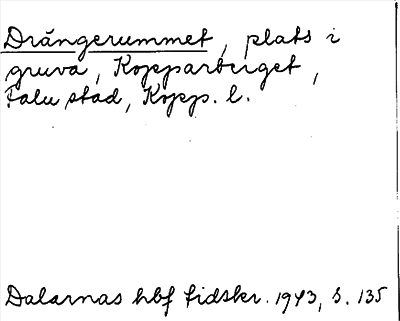 Drängerummet, plats i
gruva, Kopparberget,
Falu stad, Kopp. l.
Dalarnas hbf tidskr. 1943, s. 135